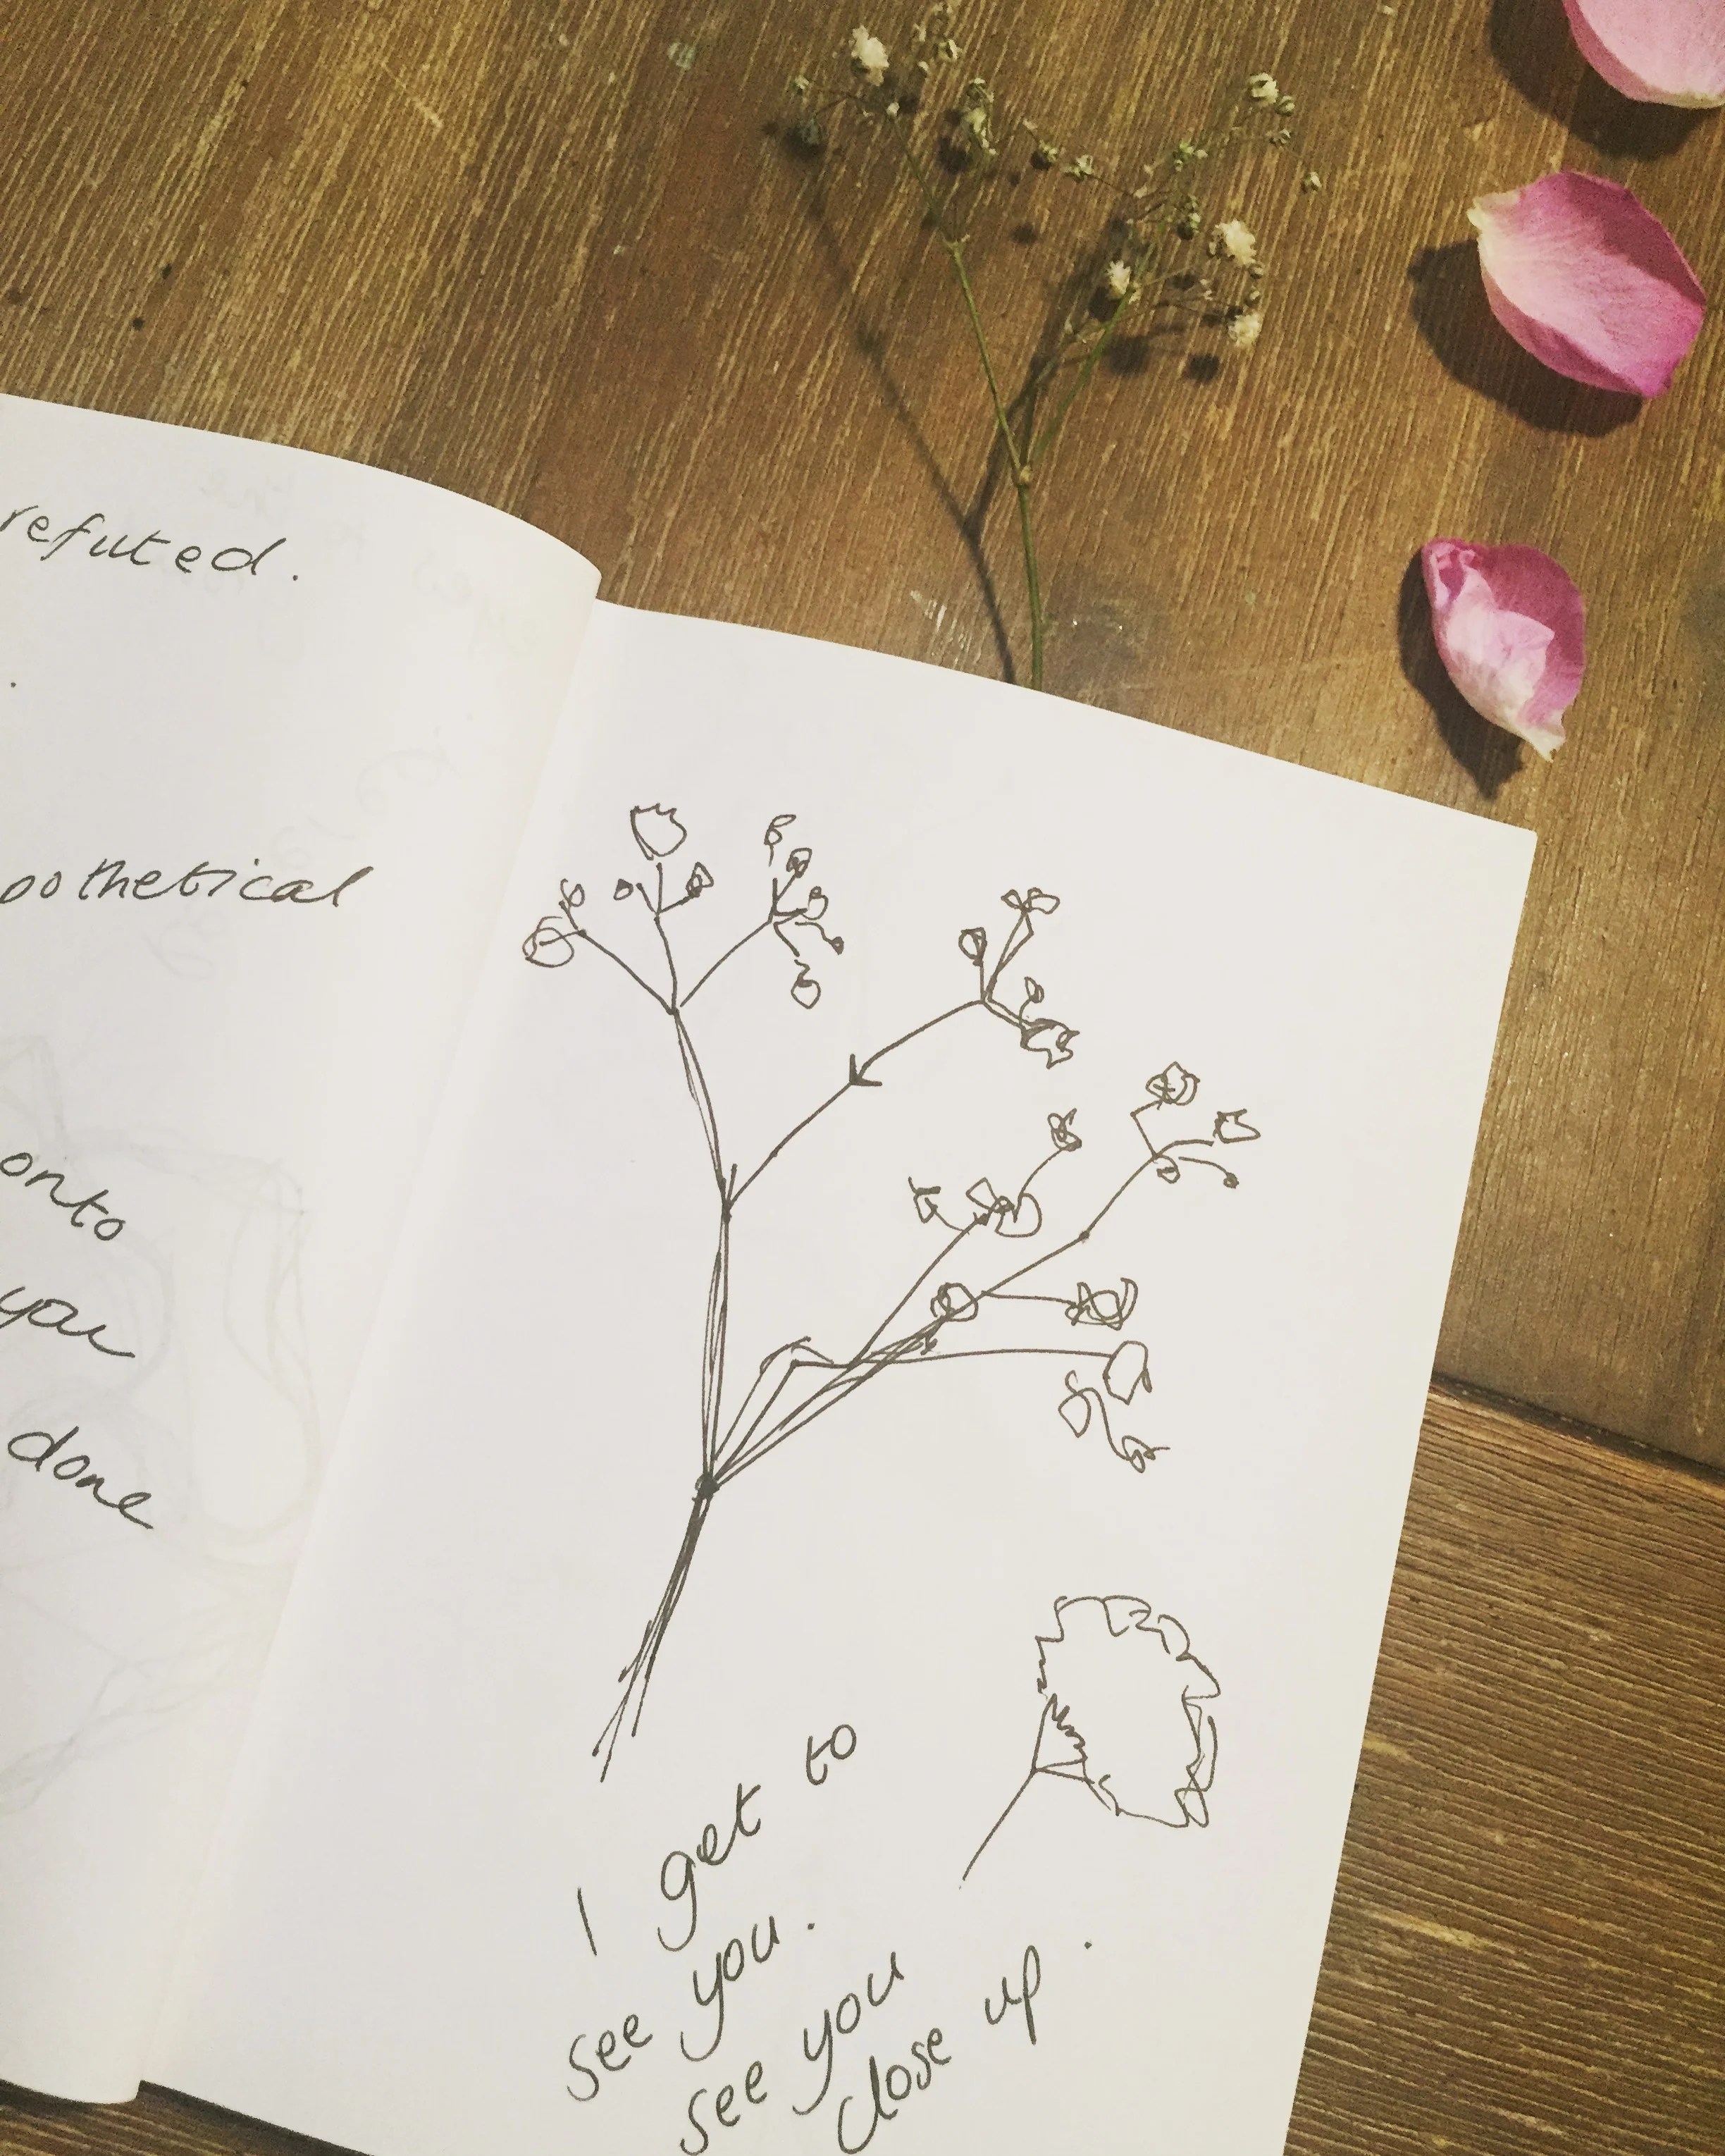 refuted.
onto
you
done
I get to
see you.
see you
close up.